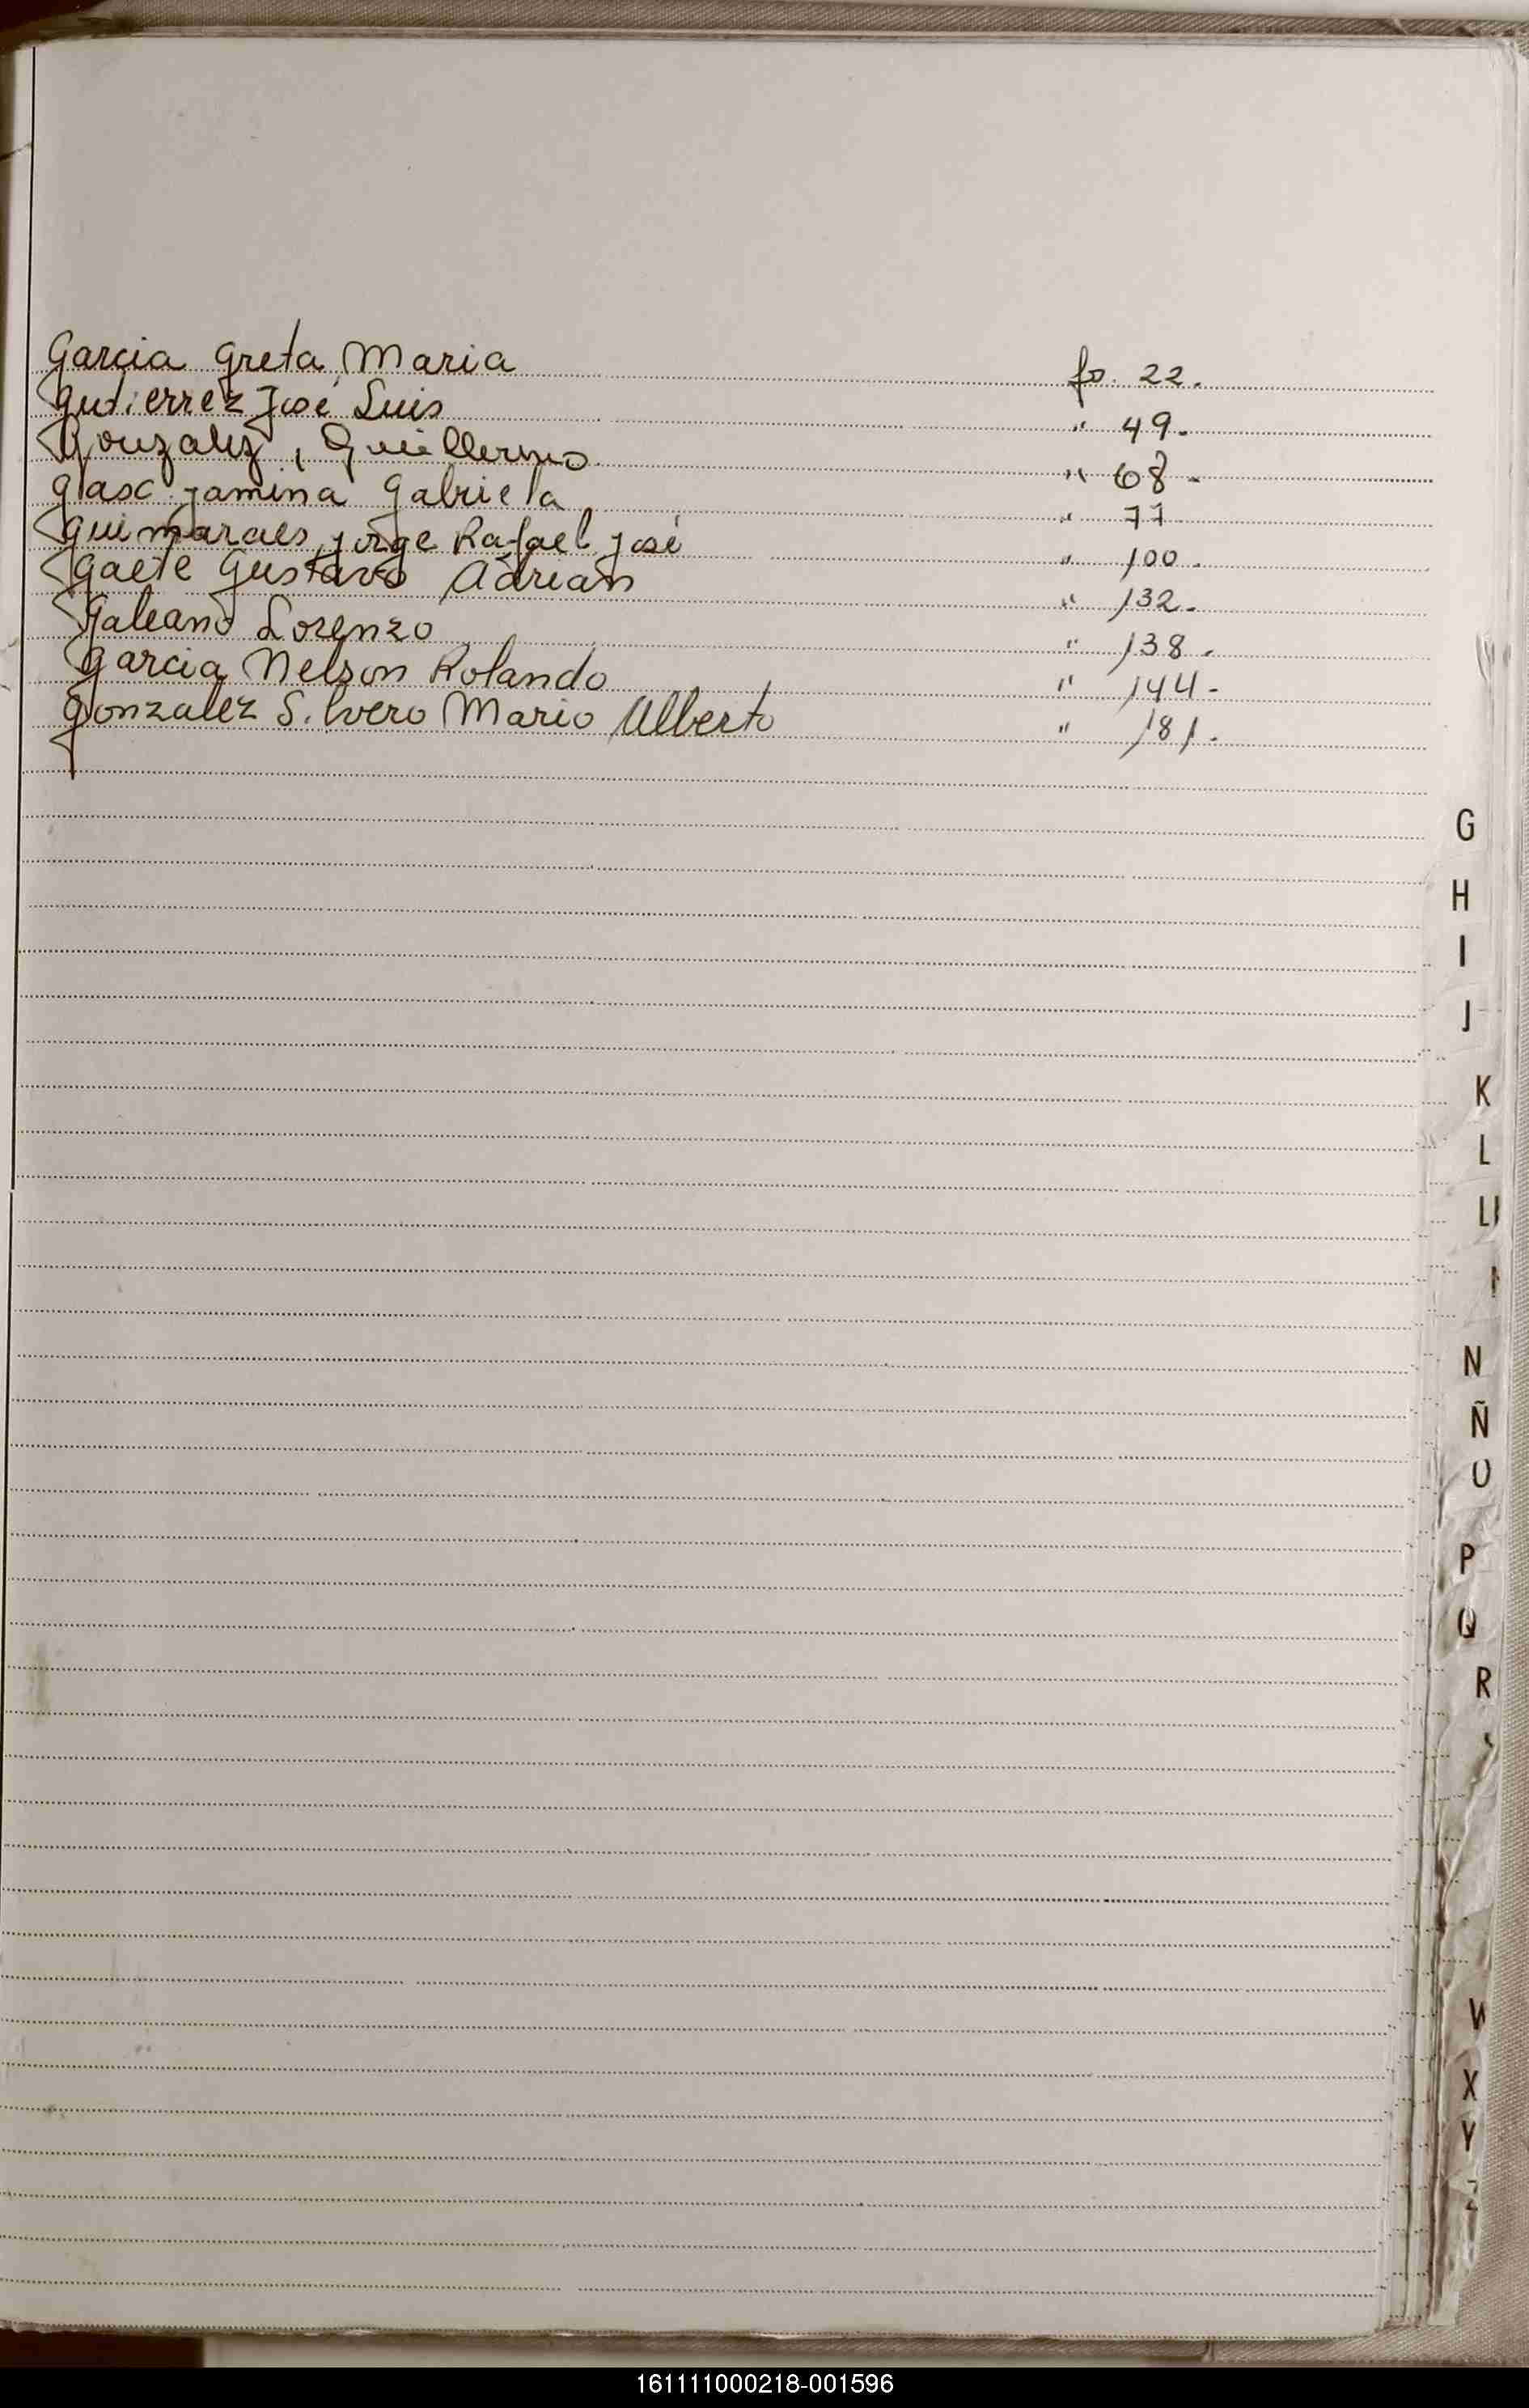 Garcia Greta Maria fo. 22.
Gutierrez José Luis " 49.
Gonzalez, Guillermo " 68.
Gasc Jamina Gabriela " 77
Guimaraes, Jorge Rafael José " 100.
Gaete Gustavo Adrian " 132.
Galeano Lorenzo " 138.
Garcia Nelson Rolando " 144.
Gonzalez Silvero Mario Alberto " 181.
G
H
I
J
K
L
Ll
N
Ñ
O
P
Q
R
W
X
Y
Z
161111000218-001596